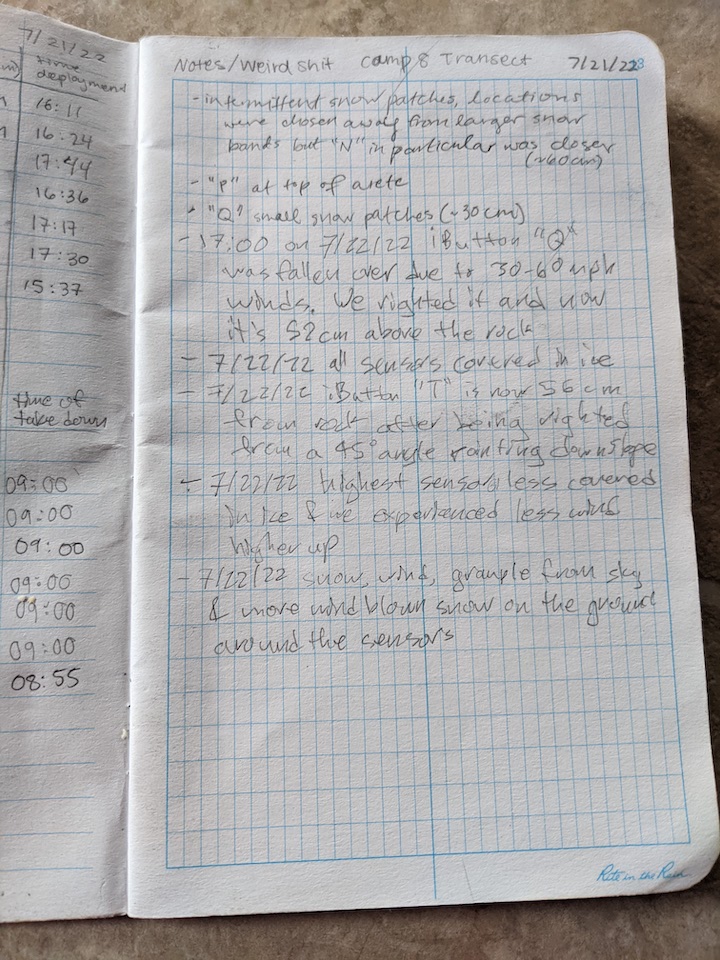 7/21/22
time
deployment
16:11
16:24
17:44
16:36
17:17
17:30
15:37
time of
take down
09:00
09:00
09:00
09:00
09:00
09:00
08:55
Notes/Weird shit Camp 8 Transect 7/21/22
- intermittent snow patches, locations
were chosen away from larger snow
bands but "N" in particular was closer
(~60cm)
- "P" at top of arete
- "Q" small snow patches (~30cm)
- 17:00 on 7/22/22 iButton "Q"
was fallen over due to 30-60 mph
winds. We righted it and now
it's 52cm above the rock
- 7/22/22 all sensors covered in ice
- 7/22/22 iButton "T" is now 56 cm
from rock after being righted
from a 45° angle pointing downslope
- 7/22/22 highest sensors less covered
in ice & we experienced less wind
higher up
- 7/22/22 snow, wind, grauple from sky
& more wind blown snow on the ground
around the sensors
Rite in the Rain